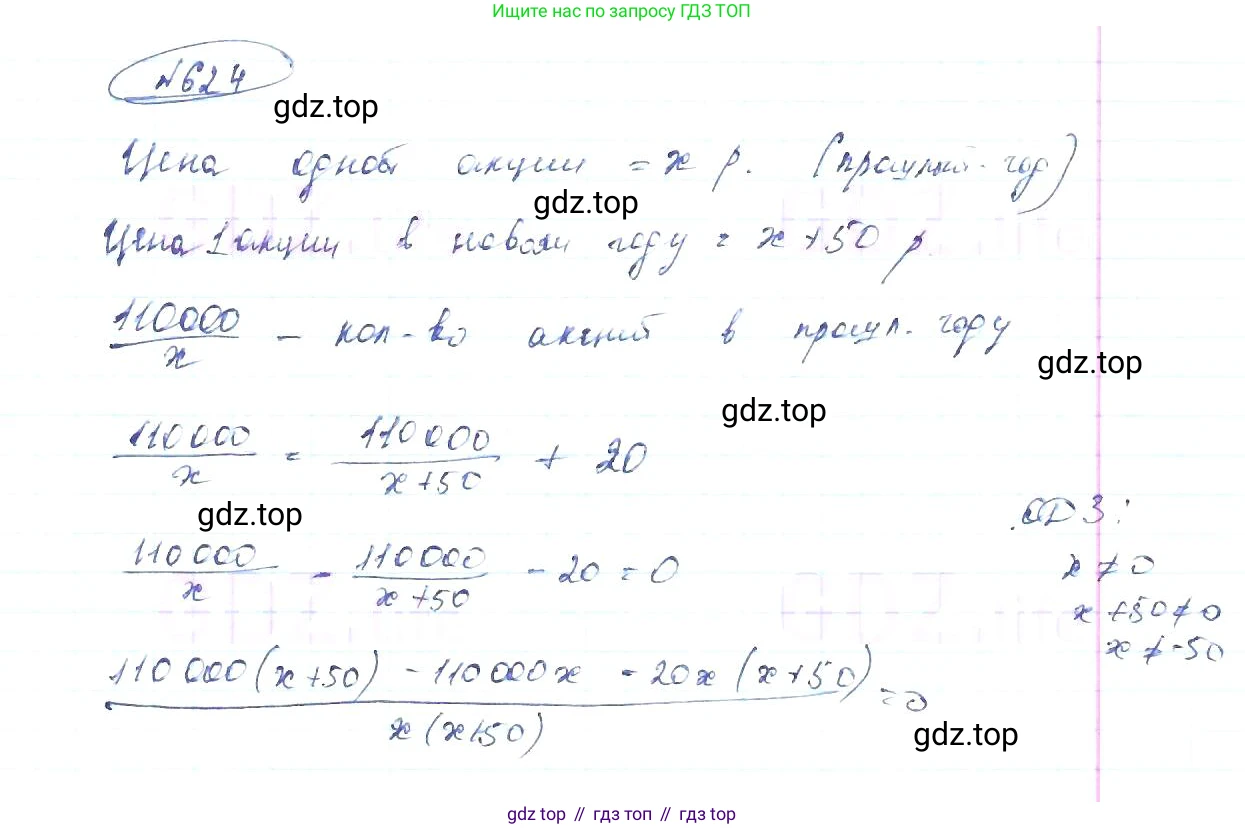 Ищите нас по запросу ГДЗ ТОП
№624
gdz.top
Цена одной акции = x р. (прошлый год)
gdz.top
gdz.top
Цена 1 акции в новом году = x+50 р.
110000/x - кол-во акций в прошл. году
gdz.top
gdz.top
110 000/x = 110 000/(x+50) + 20
gdz.top
ОДЗ:
110 000/x - 110 000/(x+50) - 20 = 0
x ≠ 0
x+50≠0
x ≠ -50
110 000(x+50) - 110 000x - 20x(x+50)/x(x+50) = 0
gdz.top
gdz top // гдз топ // гдз top